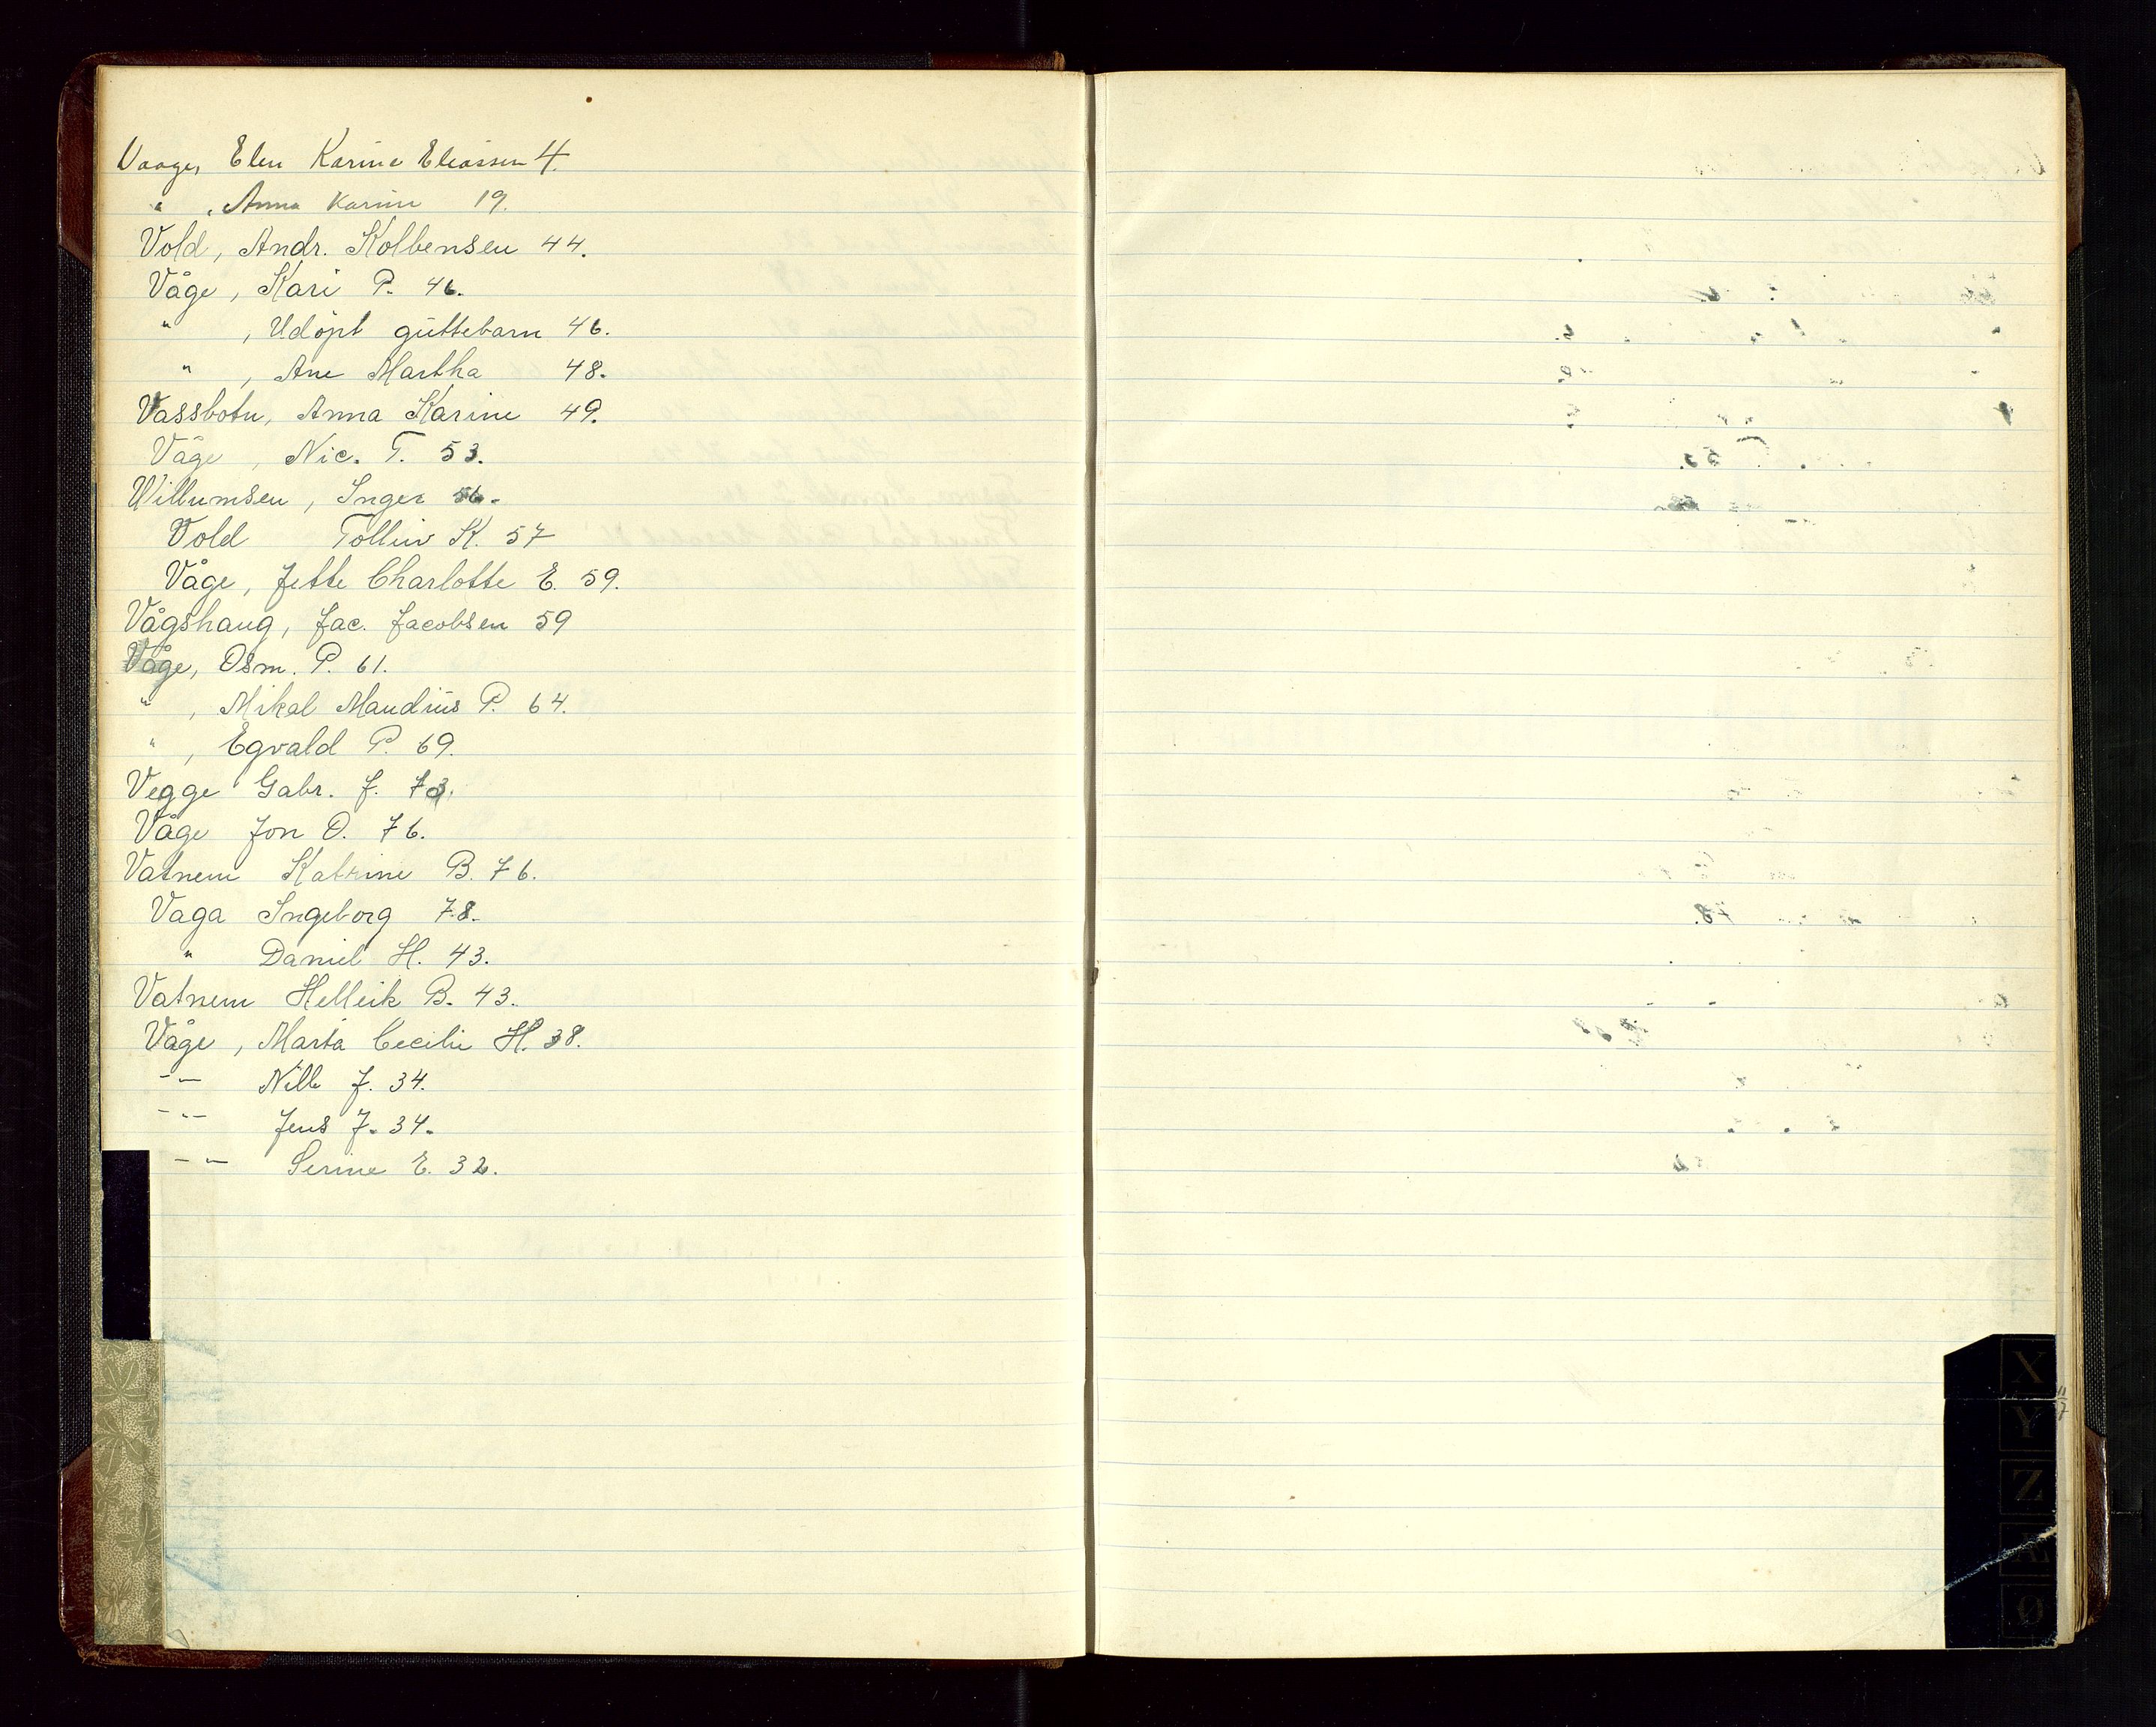 Vaage, Elen Karine Eliassen 4.
" , Anna Karine 19.
Vold, Andr. Kolbensen 44.
Våge, Kari P. 46.
" , Udöpt guttebarn 46.
" , Ane Martha 48.
Vassbotn, Anna Karine 49.
Våge, Nic. T. 53.
Willumsen, Inger 56.
Vold Tolleiv K. 57
Våge, Jette Charlotte E. 59.
Vågshaug, Jac. Jacobsen 59
Våge, Osm. P. 61.
" , Mikal Maudius P. 64.
" , Egvald P. 69.
Vegge Gabr. J. 73.
Våge Jon O. 76.
Vatnem Katrine B. 76.
Vaga Ingeborg 78.
" Daniel H. 43.
Vatnem Helleik B. 43.
Våge, Marta Cecilie H. 38.
-"- Nille J. 34.
-"- Jens J. 34.
-"- Serine E. 32.
X
Y
Z
Æ
Ø